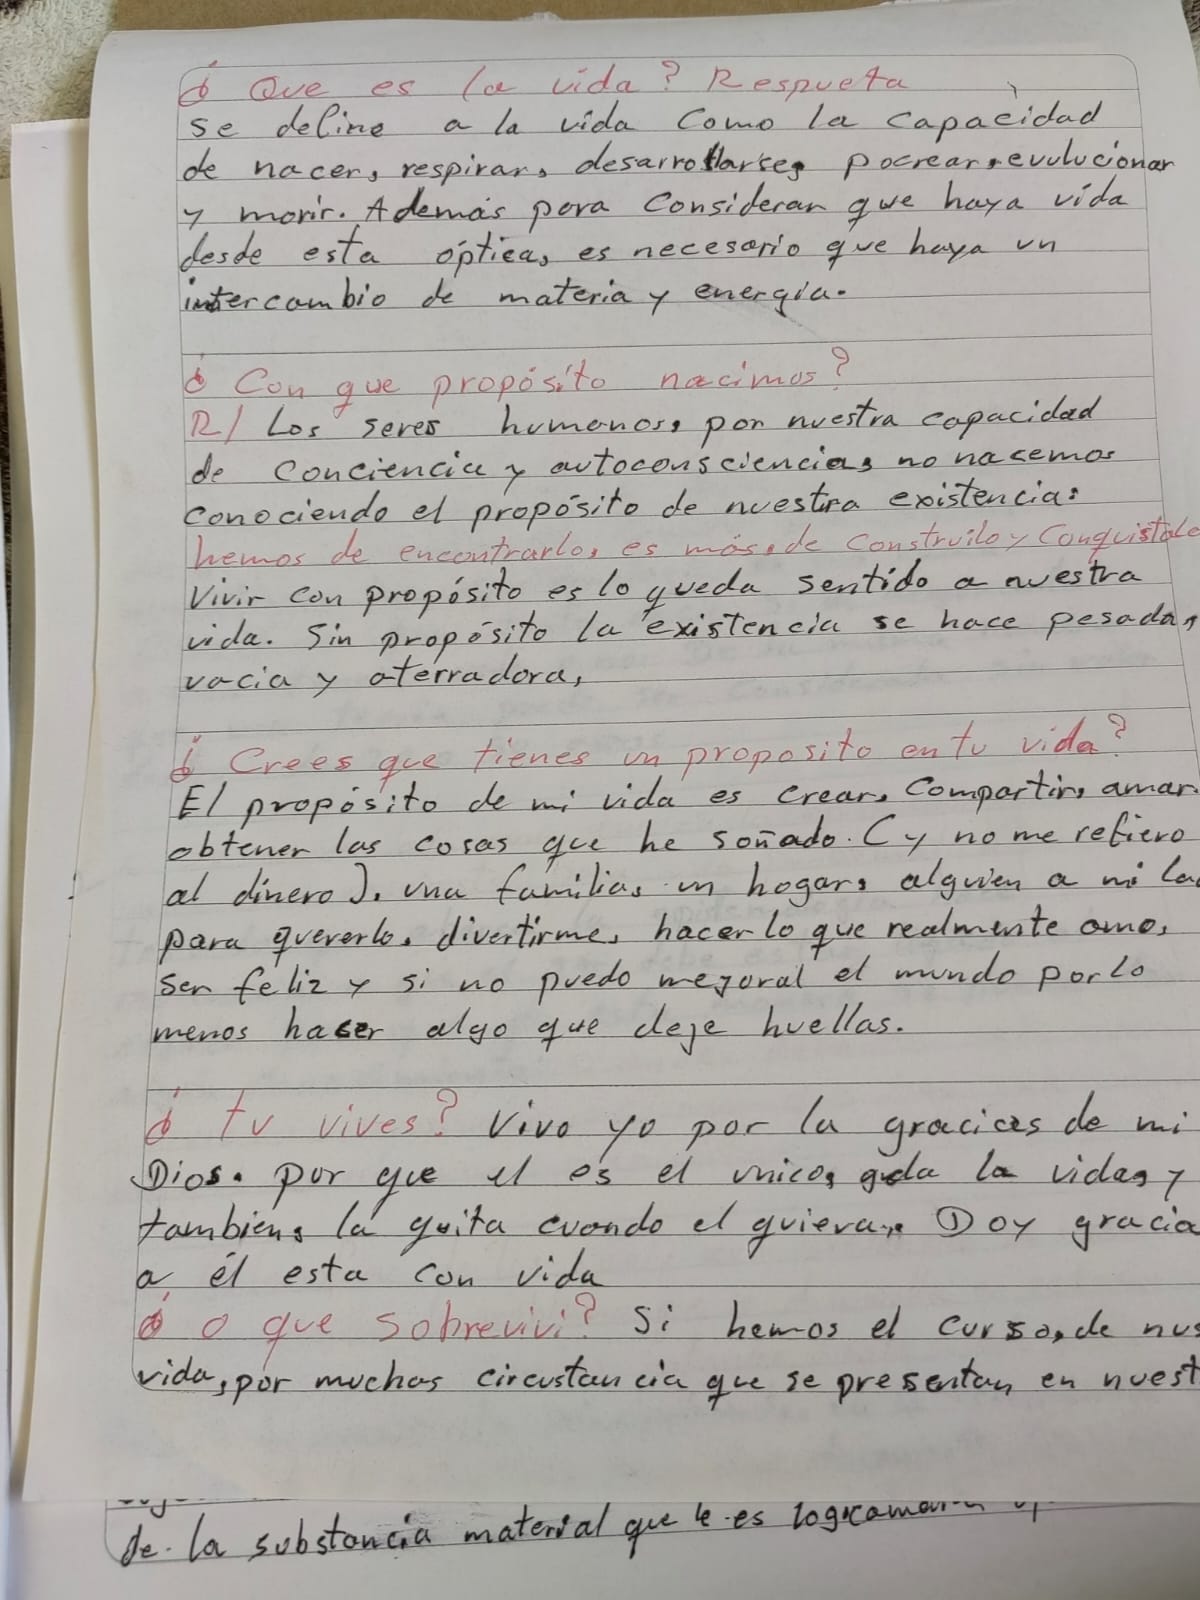 ¿ Que es la vida? Respueta
se define a la vida Como la capacidad
de nacer, respirar, desarrollarse, pocrear, evulucionar
y morir. Además para Considerar que haya vida
desde esta óptica, es necesario que haya un
intercambio de materia y energía.
¿ Con que propósito nacimos?
R/ Los seres humanos, por nuestra capacidad
de Conciencia y autoconsciencia, no nacemos
Conociendo el propósito de nuestra existencia:
hemos de encontrarlo, es más, de Construilo y Conquistale
Vivir con propósito es lo queda sentido a nuestra
vida. Sin propósito la existencia se hace pesada,
vacia y aterradora,
¿ Crees que tienes un proposito en tu vida?
El propósito de mi vida es crear, Compartir, amar.
obtener las cosas que he soñado. (y no me refiero
al dinero). una familia, un hogar, alguien a mi la
para quererlo, divertirme, hacer lo que realmente amo,
ser feliz y si no puedo mejoral el mundo por lo
menos hacer algo que deje huellas.
¿ tu vives? Vivo yo por la gracias de mi
Dios. por que el es el unico, da la vida, y
tambien, la quita cuando el quiera, Doy gracia
a él esta con vida
¿ o que sobrevivi? Si hemos el curso, de nus
vida, por muchas circustancia que se presentan en nuest
de la substancia material que le es